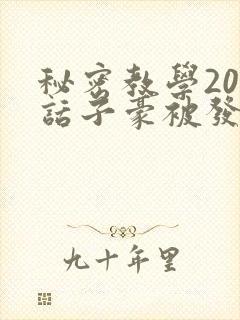 秘密教學20
話子豪被發
九十年里